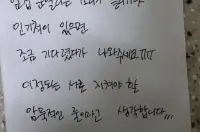 인기척이 있으면
조금 기다렸다가 나와주세요ㅠㅠ
이정도는 서로 지켜야 할
암묵적인 룰이라고 생각합니다,,,